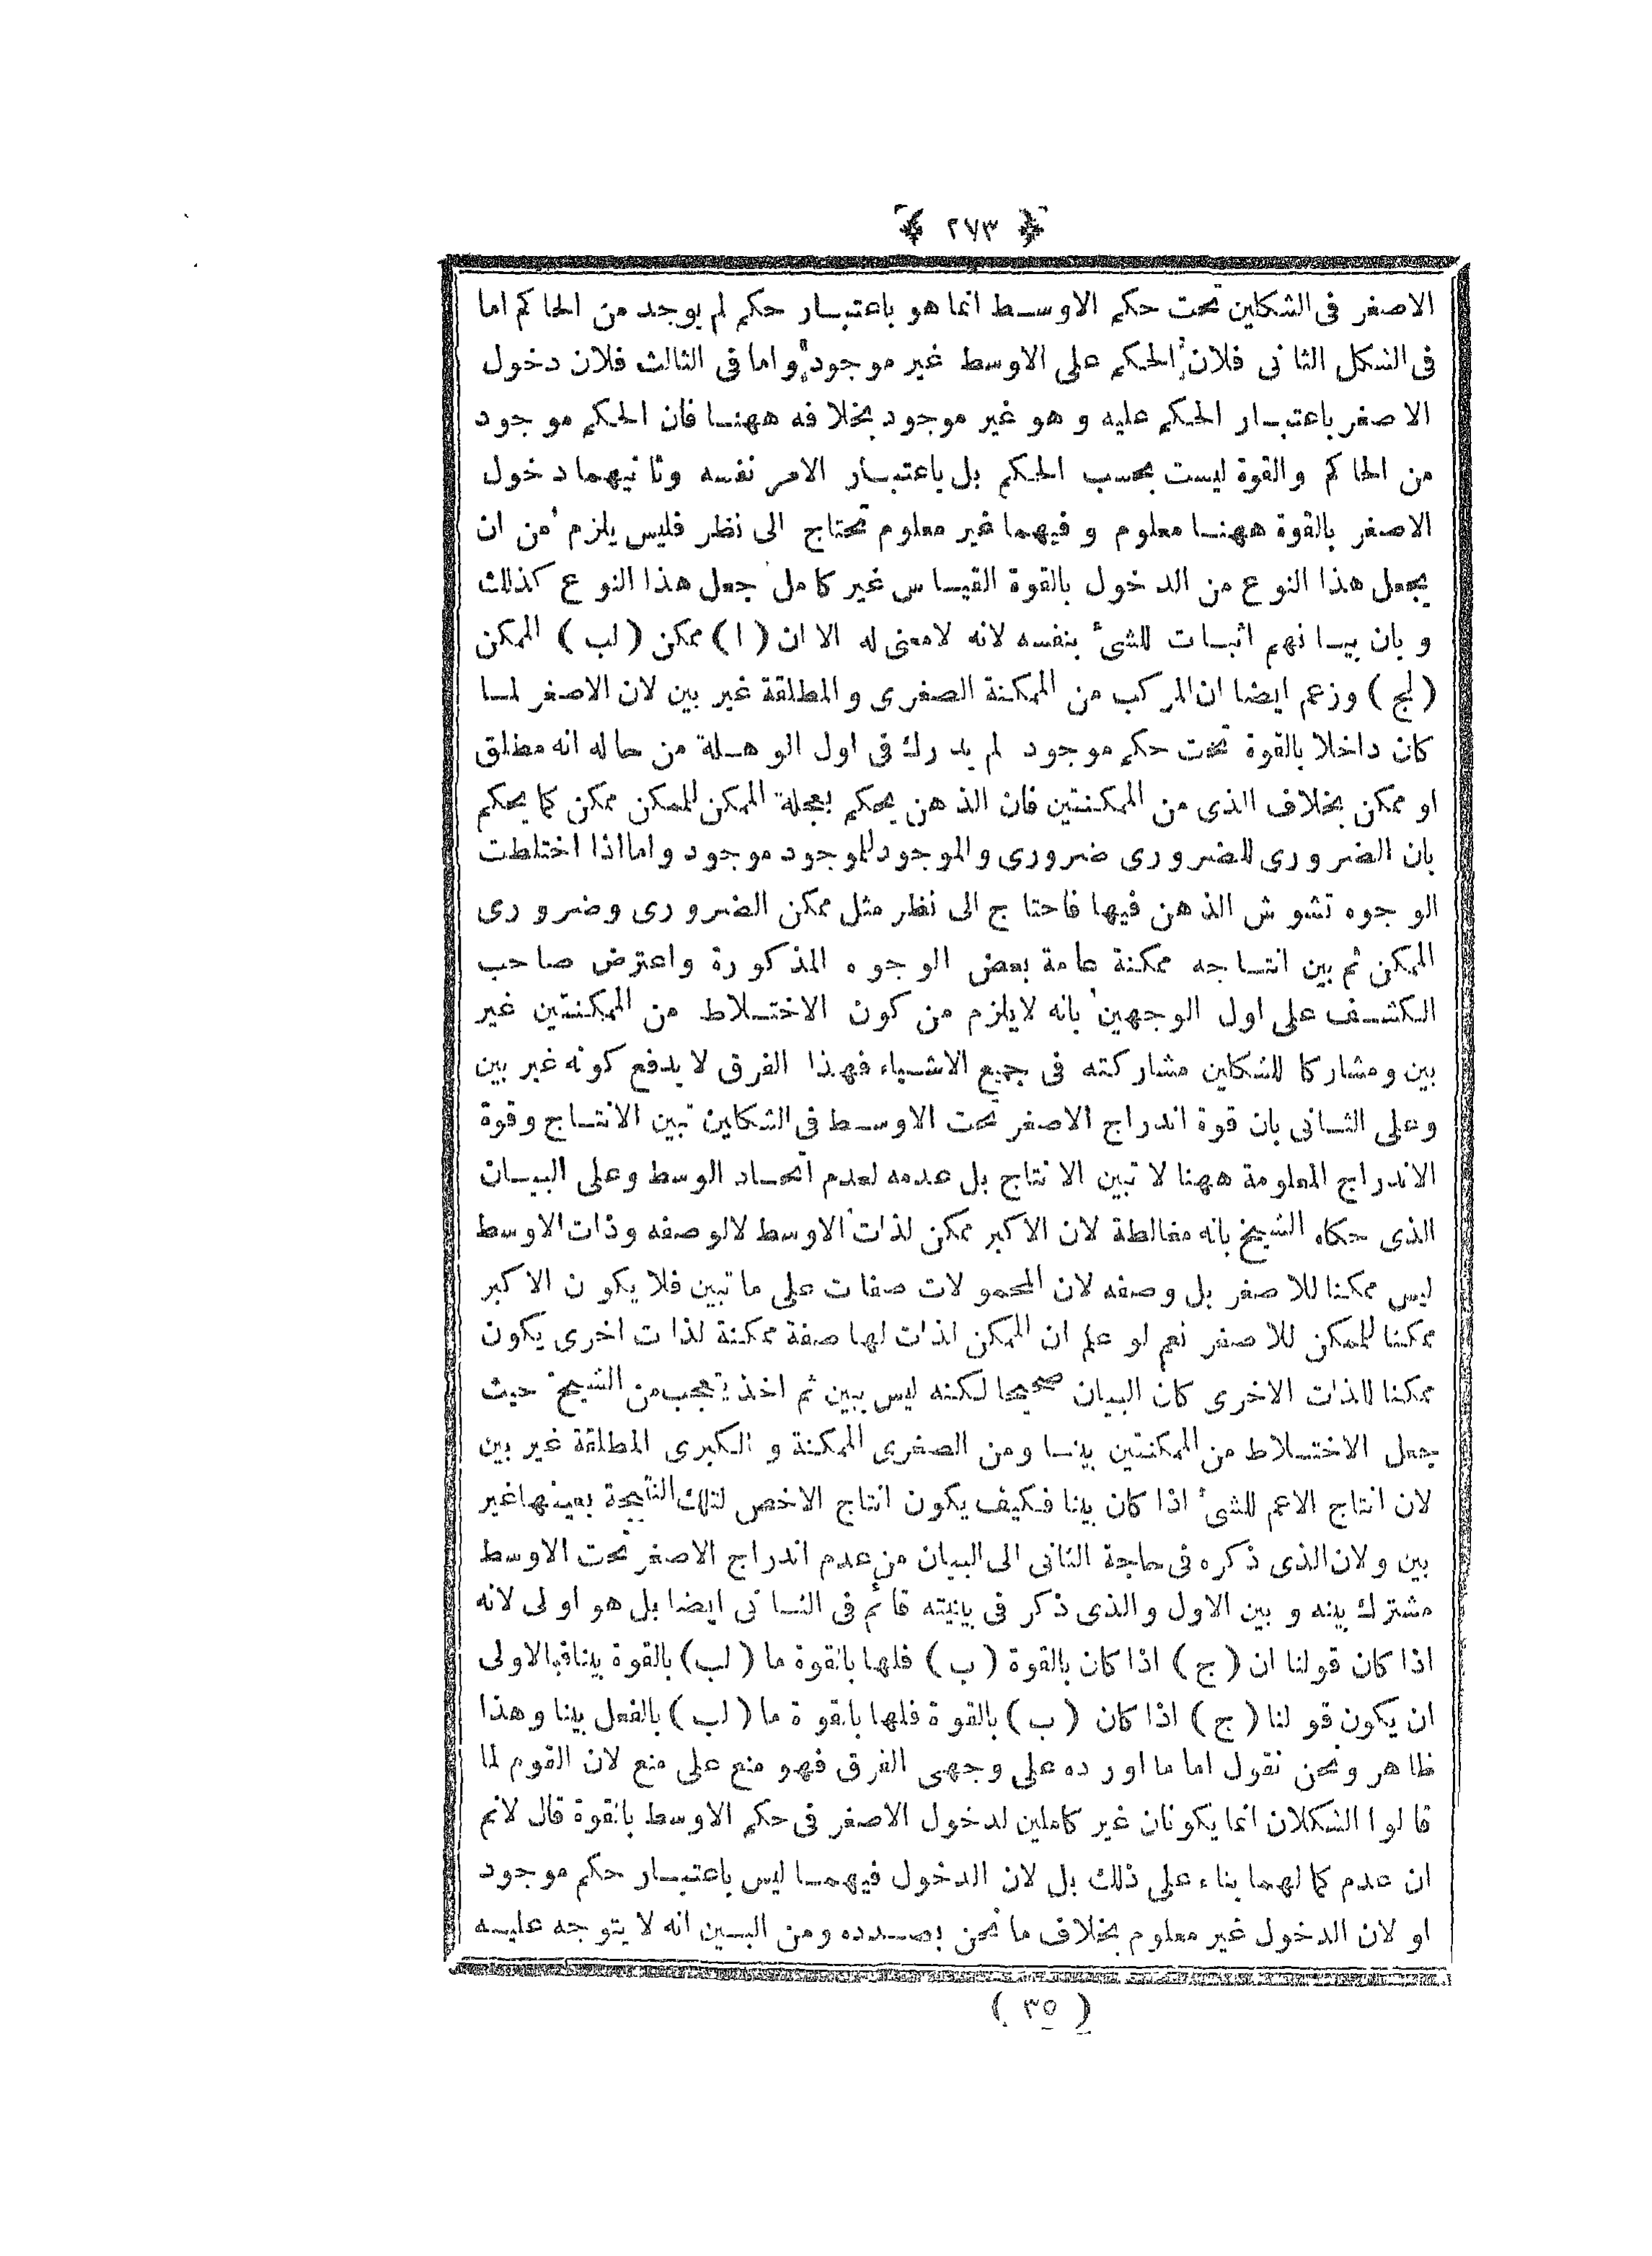 ﴿ ٢٧٣ ﴾
الاصغر فى الشكلين تحت حكم الاوسط انما هو باعتبار حكم لم يوجد من الحاكم اما
فى الشكل الثانى فلان الحكم على الاوسط غير موجود واما فى الثالث فلان دخول
الاصغر باعتبار الحكم عليه وهو غير موجود بخلافه ههنا فان الحكم موجود
من الحاكم والقوة ليست بحسب الحكم بل باعتبار الامر نفسه وثانيهما دخول
الاصغر بالقوة ههنا معلوم وفيهما غير معلوم تحتاج الى نظر فليس يلزم من ان
يجعل هذا النوع من الدخول بالقوة القياس غير كامل جعل هذا النوع كذلك
وبان بيانهم اثبات للشئ بنفسه لانه لامعنى له الا ان (ا) ممكن (لب) الممكن
(لج) وزعم ايضا ان المركب من الممكنة الصغرى والمطلقة غير بين لان الاصغر لما
كان داخلا بالقوة تحت حكم موجود لم يدرك فى اول الوهلة من حاله انه مطلق
او ممكن بخلاف الذى من الممكنتين فان الذهن يحكم بعجلة الممكن للممكن ممكن كما يحكم
بان الضرورى للضرورى ضرورى والموجود للموجود موجود واما اذا اختلطت
الوجوه تشوش الذهن فيها فاحتاج الى نظر مثل ممكن الضرورى وضرورى
الممكن ثم بين انتاجه ممكنة عامة ببعض الوجوه المذكورة واعترض صاحب
الكشف على اول الوجهين بانه لايلزم من كون الاختلاط من الممكنتين غير
بين ومشاركا للشكلين مشاركته فى جميع الاشياء فهذا الفرق لا يدفع كونه غير بين
وعلى الثانى بان قوة اندراج الاصغر تحت الاوسط فى الشكلين تبين الانتاج وقوة
الاندراج المعلومة ههنا لا تبين الانتاج بل عدمه لعدم اتحاد الوسط وعلى البيان
الذى حكاه الشيخ بانه مغالطة لان الاكبر ممكن لذات الاوسط لالوصفه وذات الاوسط
ليس ممكنا للاصغر بل وصفه لان المحمولات صفات على ماتبين فلا يكون الاكبر
ممكنا للممكن للاصغر نعم لو علم ان الممكن لذات لها صفة ممكنة لذات اخرى يكون
ممكنا للذات الاخرى كان البيان صحيحا لكنه ليس ببين ثم اخذ يتعجب من الشيخ حيث
جعل الاختلاط من الممكنتين بينا ومن الصغرى الممكنة والكبرى المطلقة غير بين
لان انتاج الاعم للشئ اذا كان بينا فكيف يكون انتاج الاخص لتلك النتيجة بعينها غير
بين ولان الذى ذكره فى حاجة الثانى الى البيان من عدم اندراج الاصغر تحت الاوسط
مشترك بينه وبين الاول والذى ذكر فى بانيته قائم فى الثانى ايضا بل هو اولى لانه
اذا كان قولنا ان (ج) اذا كان بالقوة (ب) فلها بالقوة ما (لب) بالقوة بينا فبالاولى
ان يكون قولنا (ج) اذا كان (ب) بالقوة فلها بالقوة ما (لب) بالفعل بينا وهذا
ظاهر ونحن نقول اما ما اورده على وجهى الفرق فهو منع على منع لان القوم لما
قالوا الشكلان انما يكونان غير كاملين لدخول الاصغر فى حكم الاوسط بالقوة قال لانم
ان عدم كمالهما بناء على ذلك بل لان الدخول فيهما ليس باعتبار حكم موجود
او لان الدخول غير معلوم بخلاف ما نحن بصدده ومن البين انه لا يتوجه عليه
( ٣٥ )